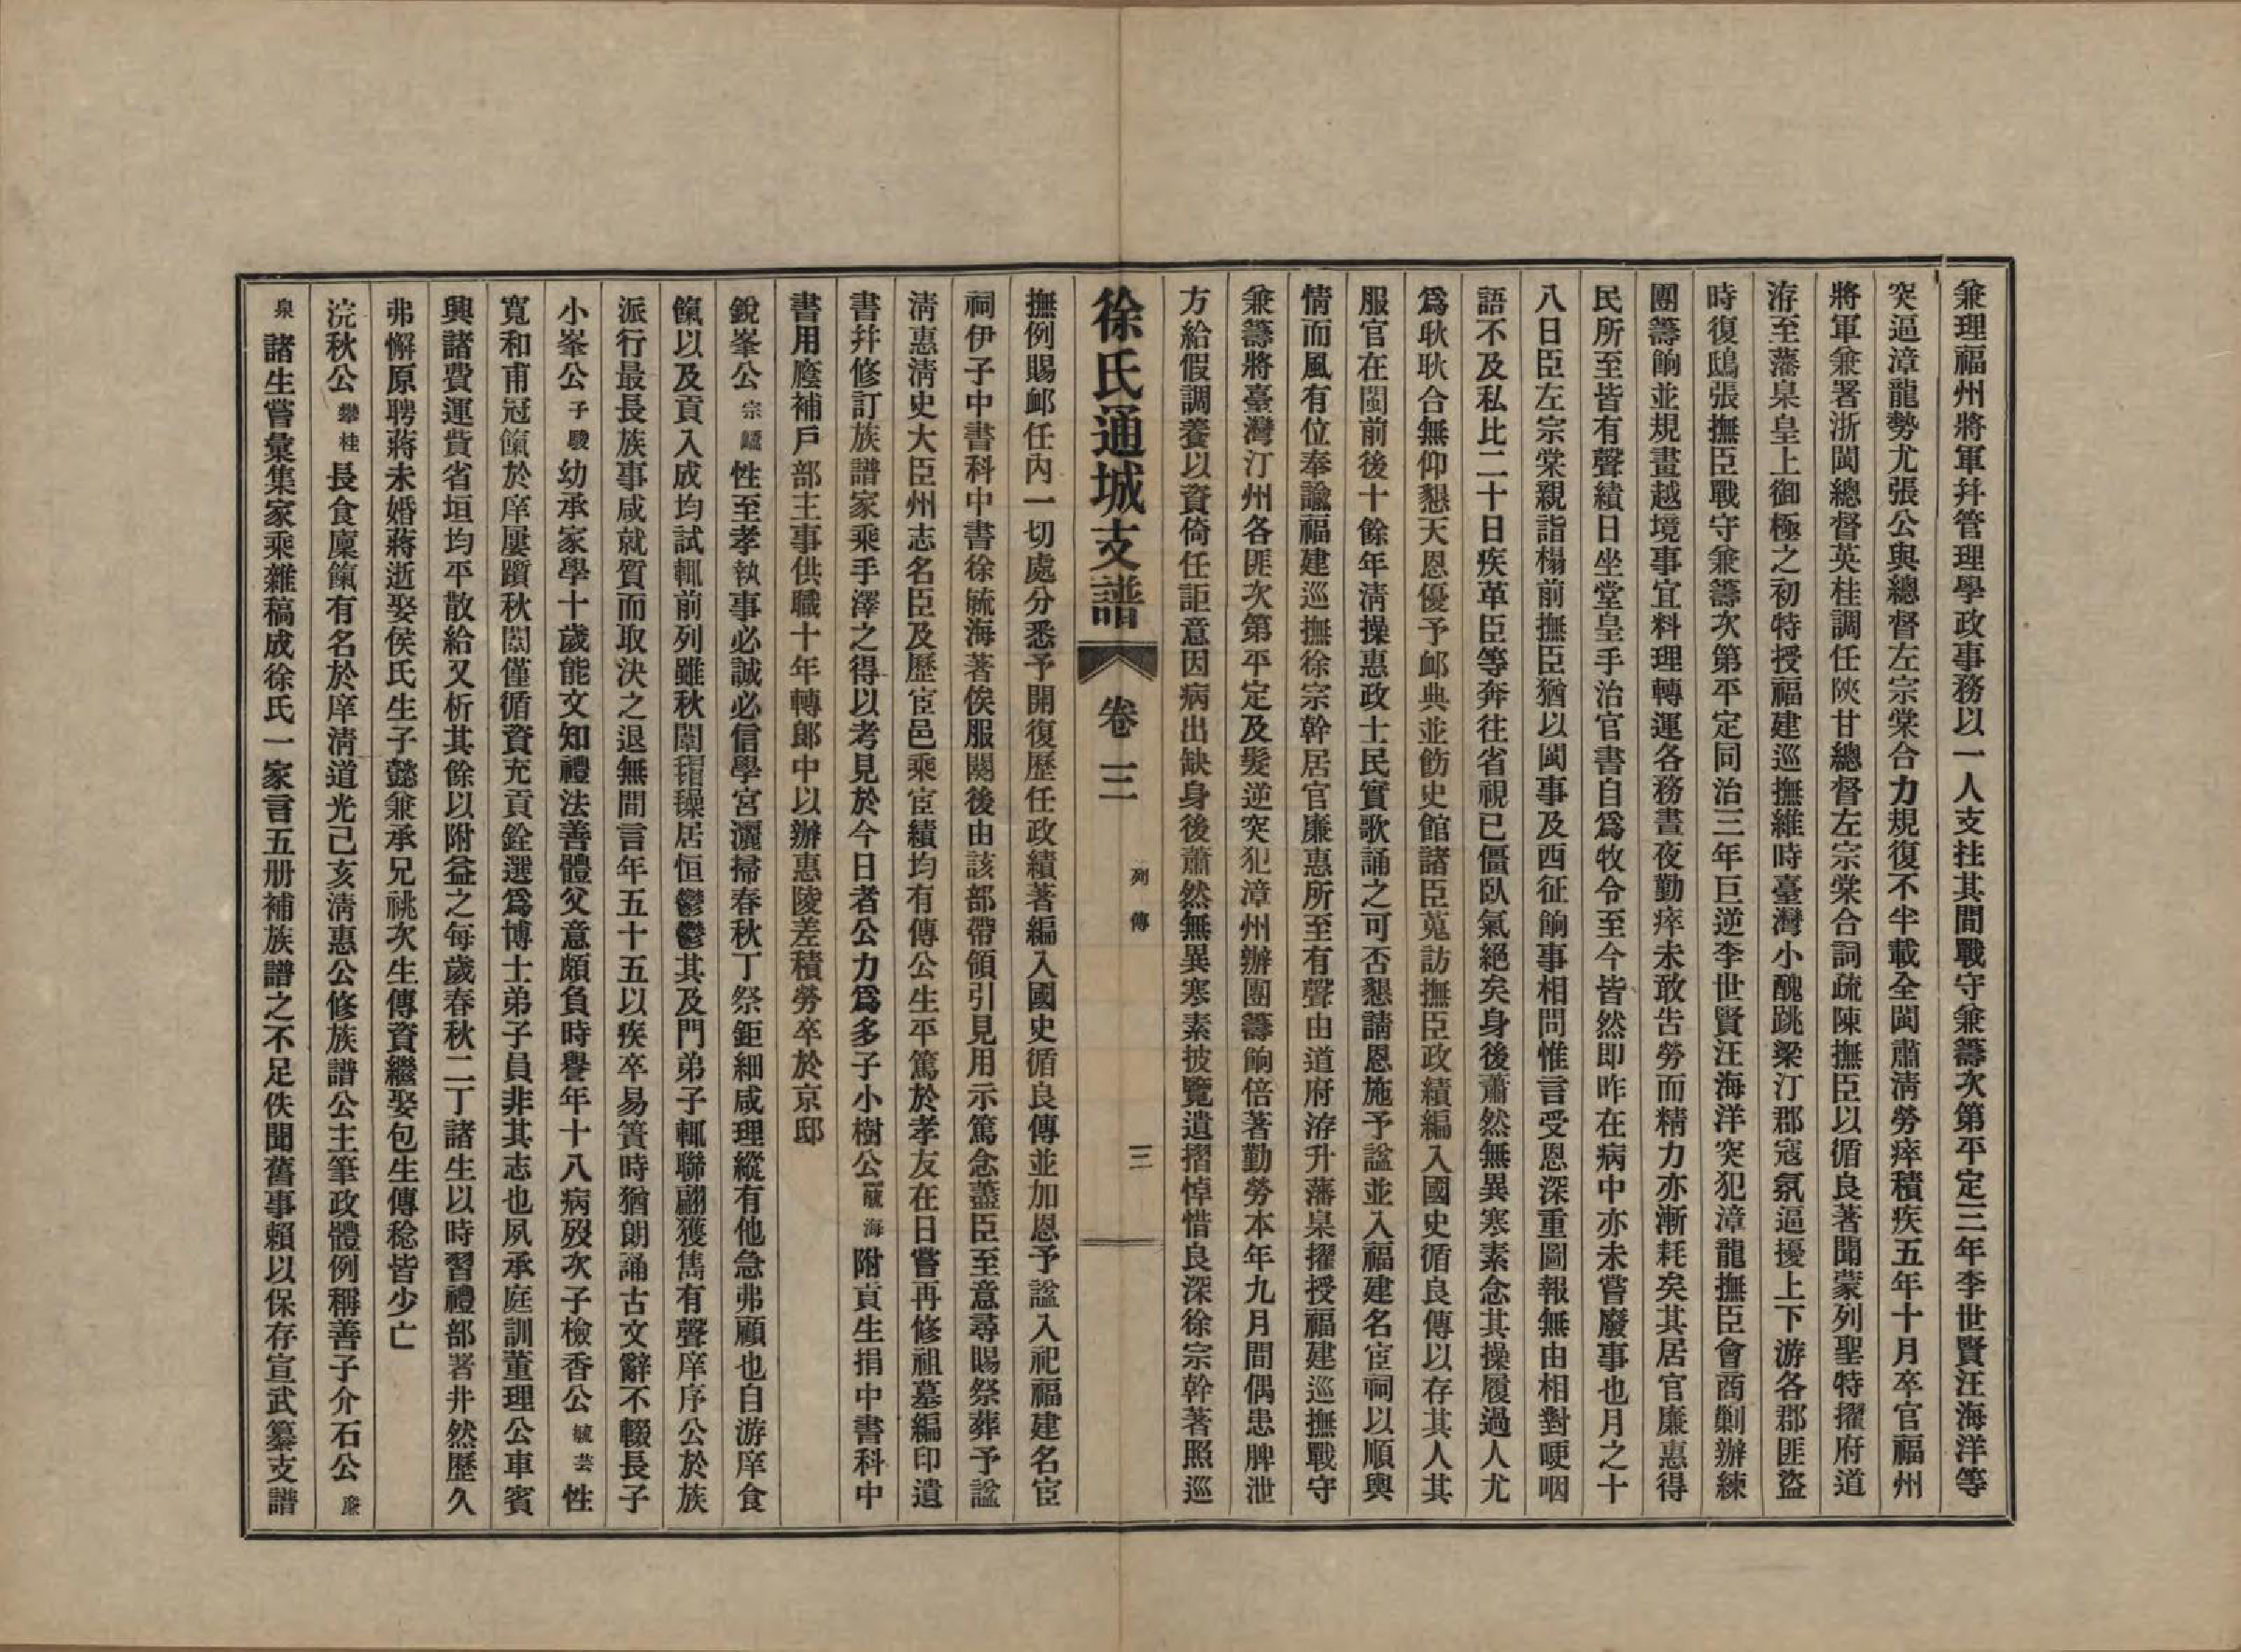 兼理福州將軍幷管理學政事務以一人支拄其間戰守兼籌次第平定三年李世賢汪海洋等
突逼漳龍勢尤張公與總督左宗棠合力規復不半載全閩肅淸勞瘁積疾五年十月卒官福州
將軍兼署浙閩總督英桂調任陝甘總督左宗棠合詞疏陳撫臣以循良著聞蒙列聖特擢府道
洊至藩臬皇上御極之初特授福建巡撫維時臺灣小醜跳梁汀郡寇氛逼擾上下游各郡匪盜
時復鴟張撫臣戰守兼籌次第平定同治三年巨逆李世賢汪海洋突犯漳龍撫臣會商剿辦練
團籌餉並規畫越境事宜料理轉運各務晝夜勤瘁未敢告勞而精力亦漸耗矣其居官廉惠得
民所至皆有聲績日坐堂皇手治官書自爲牧令至今皆然即昨在病中亦未嘗廢事也月之十
八日臣左宗棠親詣榻前撫臣猶以閩事及西征餉事相問惟言受恩深重圖報無由相對哽咽
語不及私比二十日疾革臣等奔往省視已僵臥氣絕矣身後蕭然無異寒素念其操履過人尤
爲耿耿合無仰懇天恩優予卹典並飭史館諸臣蒐訪撫臣政績編入國史循良傳以存其人其
服官在閩前後十餘年淸操惠政士民實歌誦之可否懇請恩施予諡並入福建名宦祠以順輿
情而風有位奉諭福建巡撫徐宗幹居官廉惠所至有聲由道府洊升藩臬擢授福建巡撫戰守
兼籌將臺灣汀州各匪次第平定及髮逆突犯漳州辦團籌餉倍著勤勞本年九月間偶患脾泄
方給假調養以資倚任詎意因病出缺身後蕭然無異寒素披覽遺摺悼惜良深徐宗幹著照巡
徐氏通城支譜 卷三 列傳 三
撫例賜卹任內一切處分悉予開復歷任政績著編入國史循良傳並加恩予諡入祀福建名宦
祠伊子中書科中書徐毓海著俟服闋後由該部帶領引見用示篤念藎臣至意尋賜祭葬予諡
淸惠淸史大臣州志名臣及歷宦邑乘宦績均有傳公生平篤於孝友在日嘗再修祖墓編印遺
書幷修訂族譜家乘手澤之得以考見於今日者公力爲多子小樹公毓海附貢生捐中書科中
書用廕補戶部主事供職十年轉郞中以辦惠陵差積勞卒於京邸
銳峯公宗性至孝執事必誠必信學宮灑掃春秋丁祭鉅細咸理縱有他急弗顧也自游庠食
餼以及貢入成均試輒前列雖秋闈𢷤𢷤居恒鬱鬱其及門弟子輒聯翩獲雋有聲庠序公於族
派行最長族事咸就質而取決之退無間言年五十五以疾卒易簀時猶朗誦古文辭不輟長子
小峯公子駿幼承家學十歲能文知禮法善體父意頗負時譽年十八病歿次子檢香公毓芸性
寬和甫冠餼於庠屢躓秋闈僅循資充貢銓選爲博士弟子員非其志也夙承庭訓董理公車賓
興諸費運費省垣均平散給又析其餘以附益之每歲春秋二丁諸生以時習禮部署井然歷久
弗懈原聘蔣未婚蔣逝娶侯氏生子懿兼承兄祧次生傳資繼娶包生傳稔皆少亡
浣秋公攀桂長食廩餼有名於庠淸道光己亥淸惠公修族譜公主筆政體例稱善子介石公廉
泉諸生嘗彙集家乘雜稿成徐氏一家言五册補族譜之不足佚聞舊事賴以保存宣武纂支譜